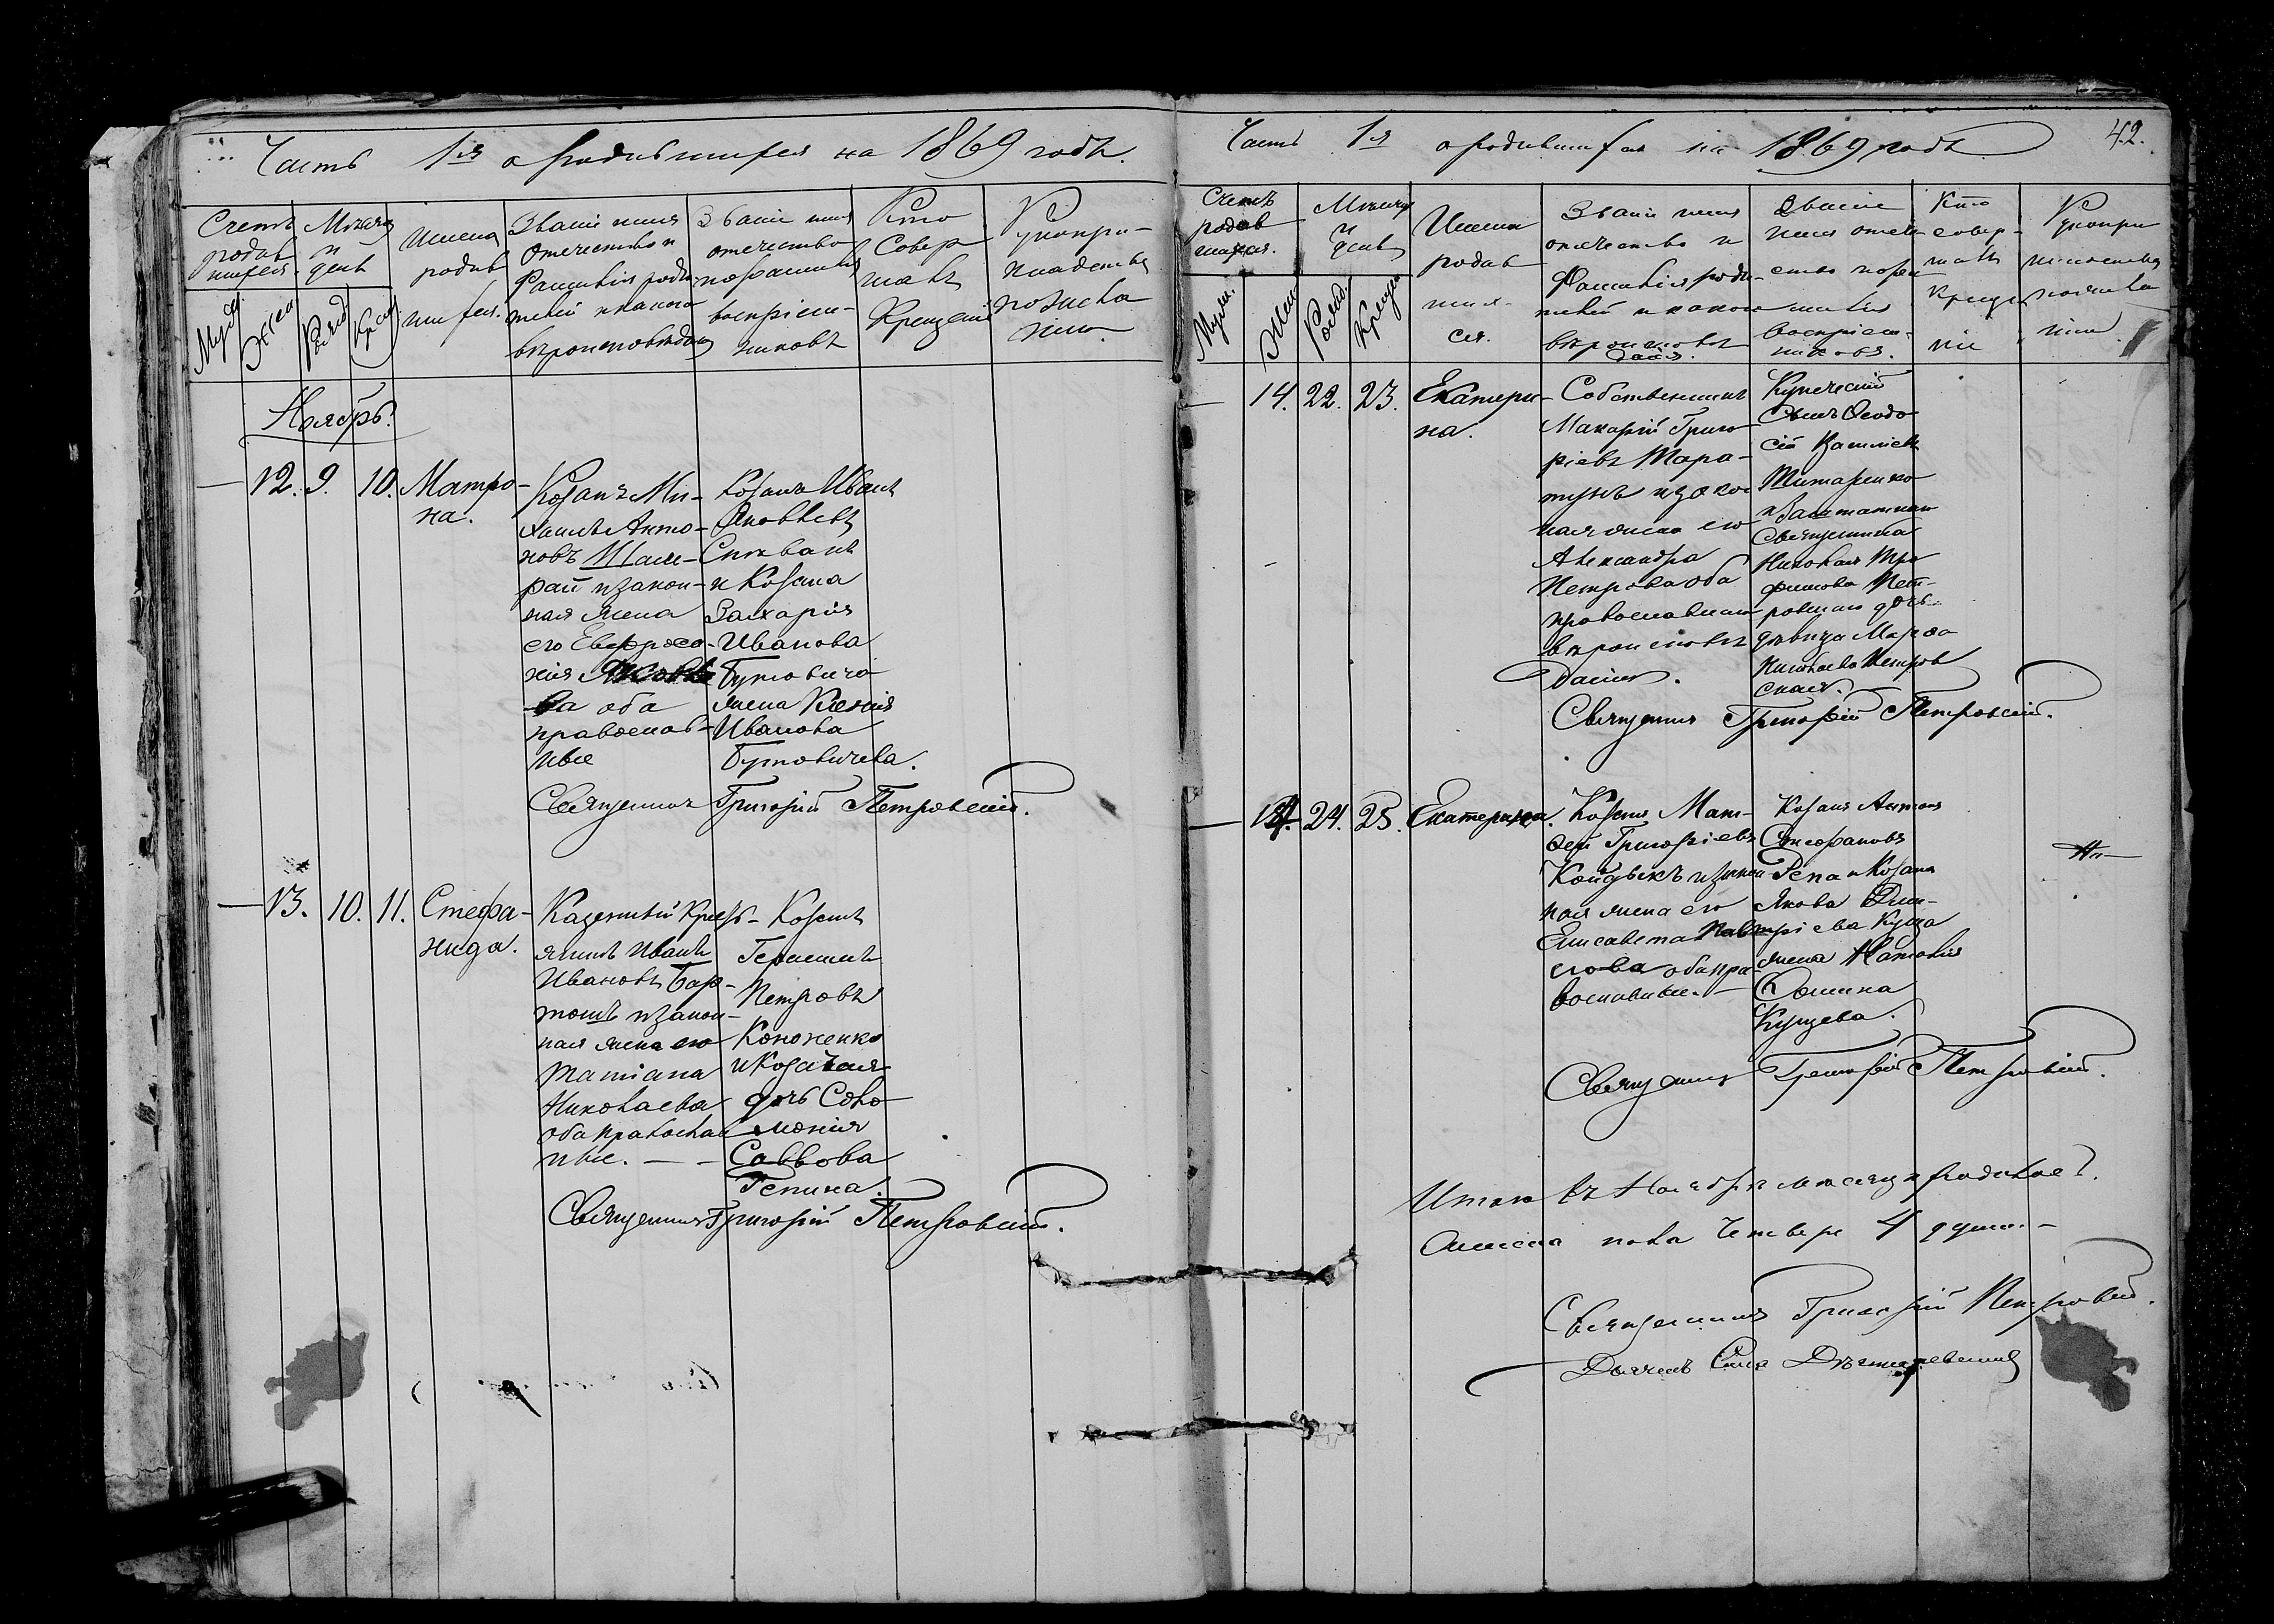 Часть 1я о родившихся на 1869 годъ.
Счетъ родившихся
Мужс.
Жен.
Мѣсяцъ и день
Рожд.
Крещ.
Имена родившихся.
Званіе имя отечество и фамилія родителей и какого вѣроисповѣданія
Званіе имя отечество и фамилія воспріемниковъ
Кто совершалъ крещеніе
Рукоприкладство
Ноябрь.
— 12. 9. 10. Матро-
на.
Козакъ Ми-
хаилъ Анто-
новъ
и закон-
ная жена
его Евфроси-
нія Яковле
ва оба
православ-
ные
Козакъ Иванъ
Яковлевъ
и Козака
Захарія
Иванова
Бутовича
жена Ксенія
Иванова
Бутовичева.
Священникъ Григорій Петровскій.
— 13. 10. 11. Стефа-
нида.
Казенный Кресть-
янинъ Иванъ
Ивановъ
и закон-
ная жена его
Татіана
Николаева
оба православ
ные. — —
Козакъ
Герасимъ
Петровъ
Кононенко
и Козачья
дочь Соло
монія
Саввова
Репина.
Священникъ Григорій Петровскій.
Часть 1я о родившихся на 1869 годъ
42.
Счетъ родившихся.
Муж.
Жен.
Мѣсяцъ и день
Рожд.
Крещен
Имена родившихся.
Званіе имя отечество и фамилія родителей и какого вѣроисповѣданія.
Званіе имя отечество и фамилія воспріемниковъ.
Кто совершалъ крещеніе
— 14. 22. 23. Екатери-
на.
Собственникъ
Макарій Григо
ріевъ Тара-
и закон
ная жена его
Александра
Петрова оба
православнаго
вѣроисповѣ
данія.
Купеческій
Сынъ Ѳеодо
сій
Титаренко
и Заштатнаго
Священника
Николая Тро
фимова Пет-
ровскаго дочь
дѣвица Марѳа
Николаева Петров
ская.
Священникъ Григорій Петровскій.
— 24. 25. Екатерина.
Козакъ Мат-
ѳей Григоріевъ
и закон
ная жена его
Елисавета Пав
лова оба пра-
вославные. —
Козакъ Антонъ
Стефановъ
Репа и Козака
Якова Дми-
тріева Куща
жена Наталія
Ѳомина
Кущева.
Священникъ Григорій Петровскій.
Итого въ Ноябрѣ мѣсяцѣ родилось
пола четыре 4 души. —
Священникъ Григорій Петровскій.
Дьячекъ